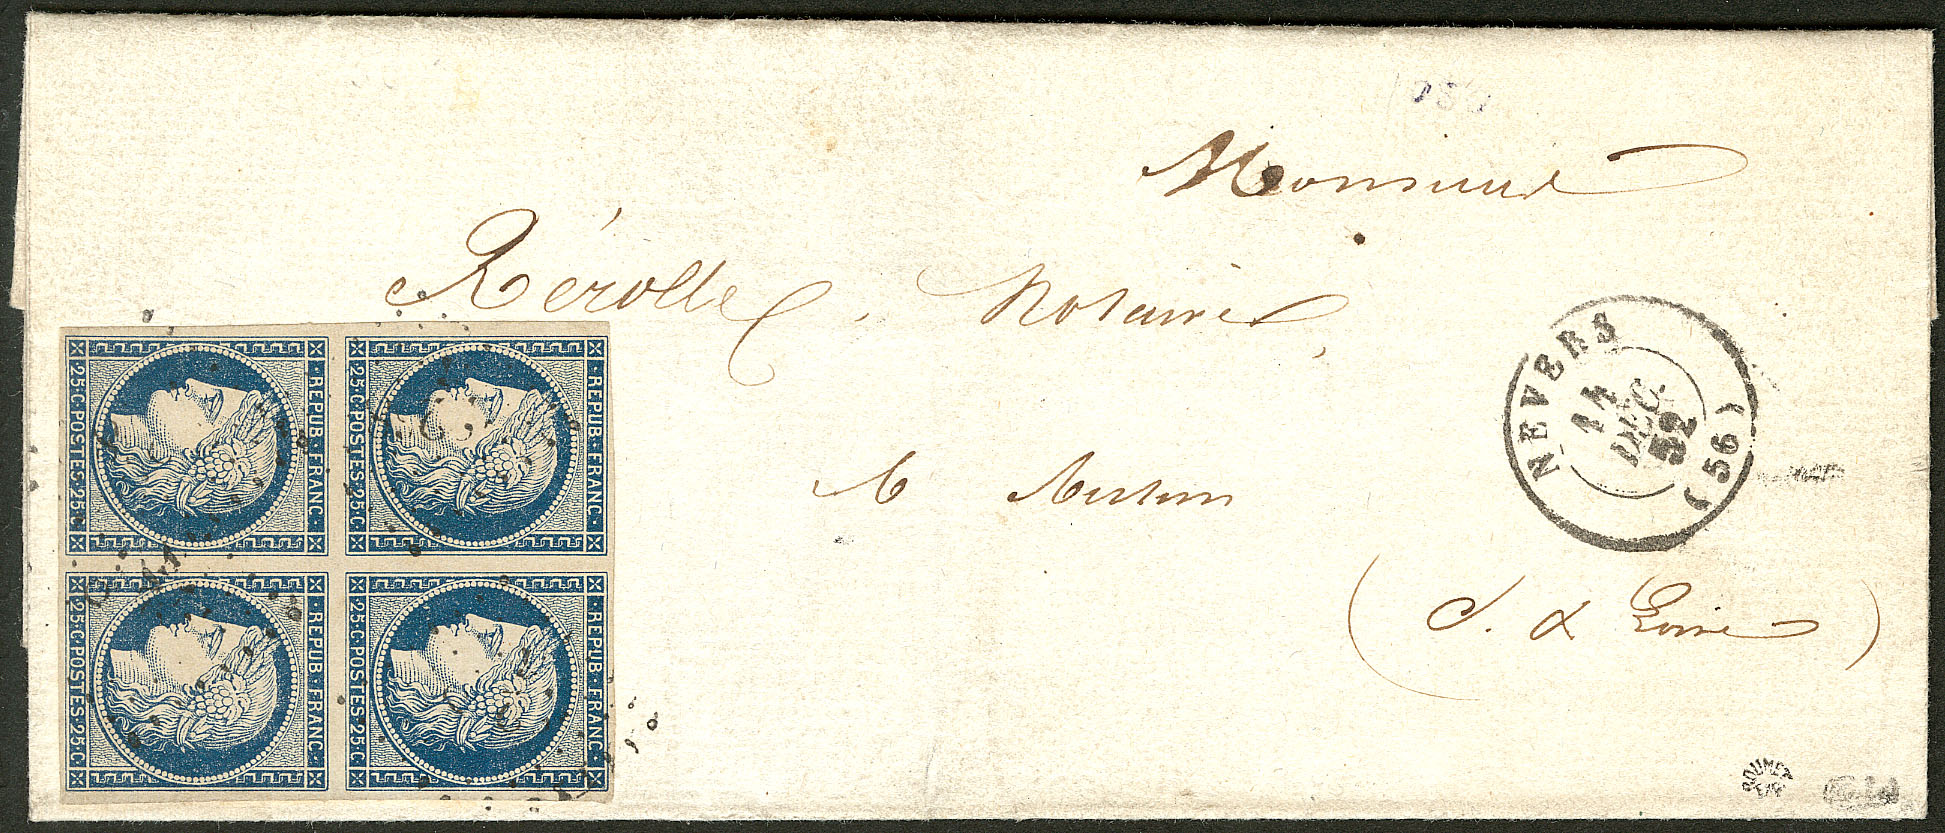 Monsieur
Rérolle, Notaire
à Autun
(S. & Loire)
NEVERS
14
DEC.
52
(56)
REPUB·FRANC·
25·C·POSTES·25·C
REPUB·FRANC·
25·C·POSTES·25·C
REPUB·FRANC·
25·C·POSTES·25·C
REPUB·FRANC·
25·C·POSTES·25·C
ROUMET